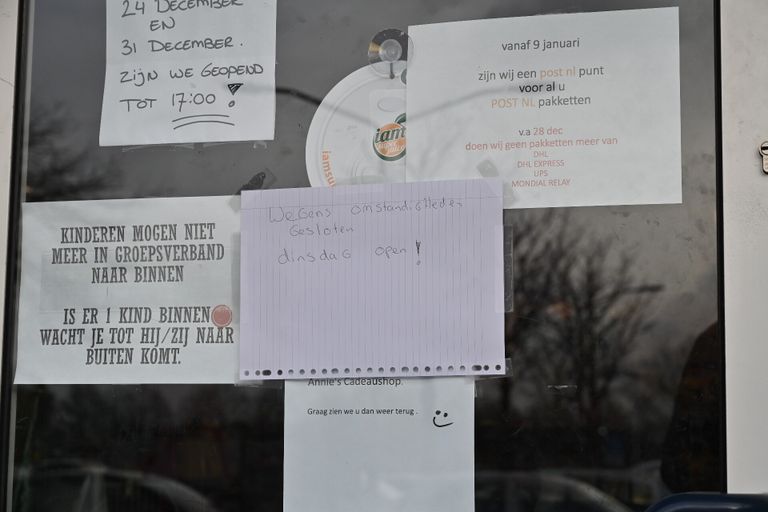 24 DECEMBER
EN
31 DECEMBER.
ZIJN WE GEOPEND
TOT 17:00!
vanaf 9 januari
zijn wij een post nl punt
voor al u
POST NL pakketten
v.a 28 dec
doen wij geen pakketten meer van
DHL
DHL EXPRESS
UPS
MONDIAL RELAY
iam
iamsu
KINDEREN MOGEN NIET
MEER IN GROEPSVERBAND
NAAR BINNEN
IS ER 1 KIND BINNEN
WACHT JE TOT HIJ/ZIJ NAAR
BUITEN KOMT.
Wegens omstandigheden
Gesloten
dinsdag open!
Annie's Cadeaushop.
Graag zien we u dan weer terug.